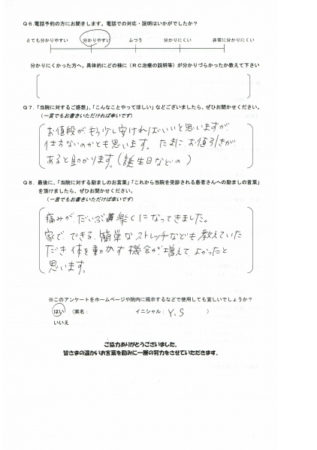 Q6.電話予約の方にお聞きします。電話での対応・説明はいかがでしたか？
とても分かりやすい　分かりやすい　ふつう　分かりにくい　非常に分かりにくい
分かりにくかった方へ、具体的にどの様に（RC治療の説明等）が分かりづらかったか教えて下さい
Q7.「当院に対するご感想」、「こんなことやってほしい」などございましたら、ぜひお聞かせください。
（一言でもお書きいただければ幸いです）
お値段がもう少し安ければいいと思いますが
仕方ないのかとも思います。たまにお値引きが
あると助かります。（誕生日などの）
Q8.最後に、「当院に対する励ましのお言葉」「これから当院を受診される患者さんへの励ましの言葉」
を頂けましたら、ぜひお聞かせください。
（一言でもお書きいただけば幸いです）
痛みがだいぶ楽くになってきました。
家でできる簡単なストレッチなども教えていた
だき体を動かす機会が増えてよかったと
思います。
※このアンケートをホームページや院内に掲示するなどで使用しても宜しいでしょうか？
はい　（実名：　イニシャル：Y.S　）
いいえ
ご協力ありがとうございました。
皆さまの温かいお言葉を励みに一層の努力をさせていただきます。